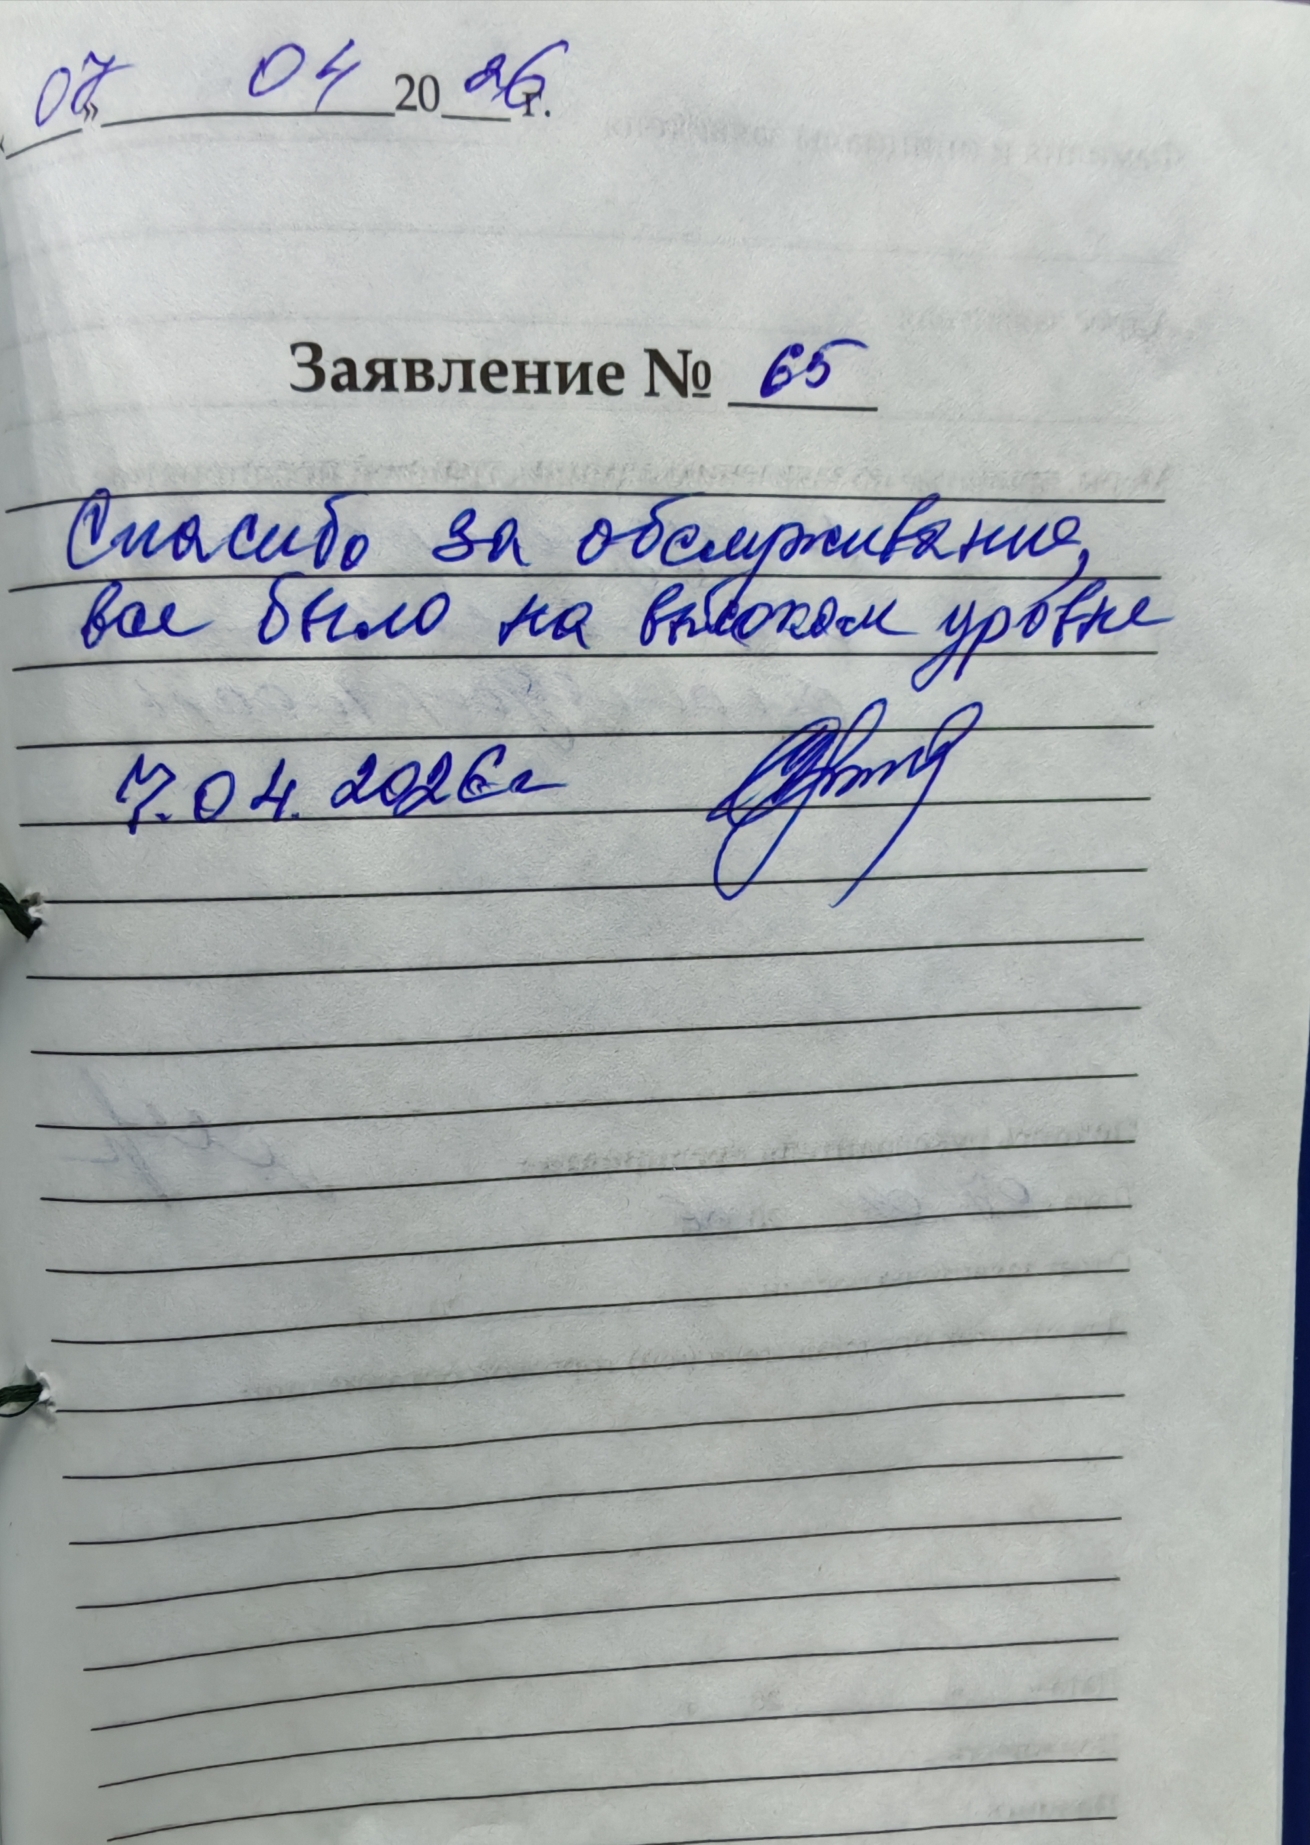 «07» 04 2026 г.
Заявление № 65
Спасибо за обслуживание,
все было на высоком уровне
7.04.2026г